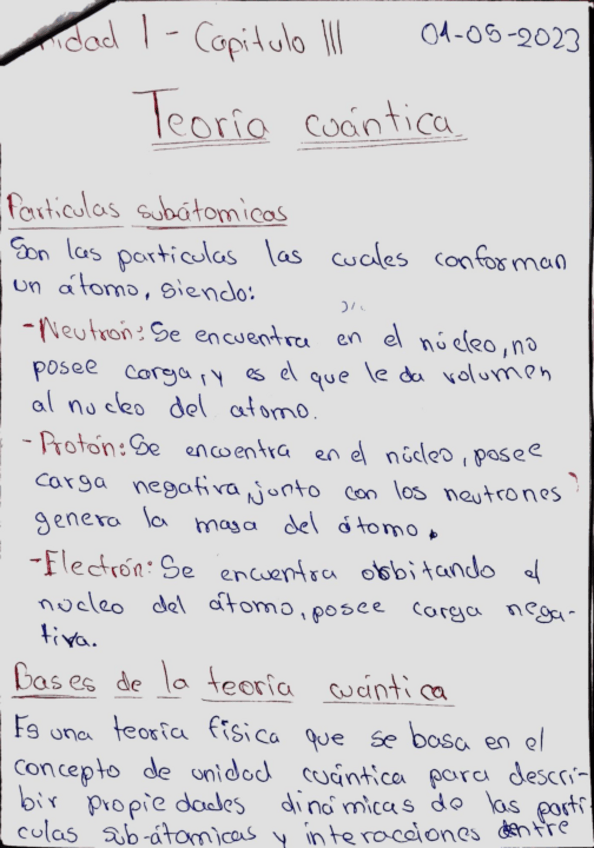 nidad I - Capitulo III 01-05-2023
Teoría cuántica
Particulas subátomicas
Son las particulas las cuales conforman
un átomo, siendo:
- Neutrón: Se encuentra en el núcleo, no
posee carga, y es el que le da volumen
al nucleo del atomo.
- Protón: Se encuentra en el núcleo, posee
carga negativa, junto con los neutrones
genera la masa del átomo.
- Electrón: Se encuentra orbitando el
nucleo del átomo, posee carga nega-
tiva.
Bases de la teoría cuántica
Es una teoría física que se basa en el
concepto de unidad cuántica para descri-
bir propiedades dinámicas de las parti
culas sub-átomicas y interacciones entre